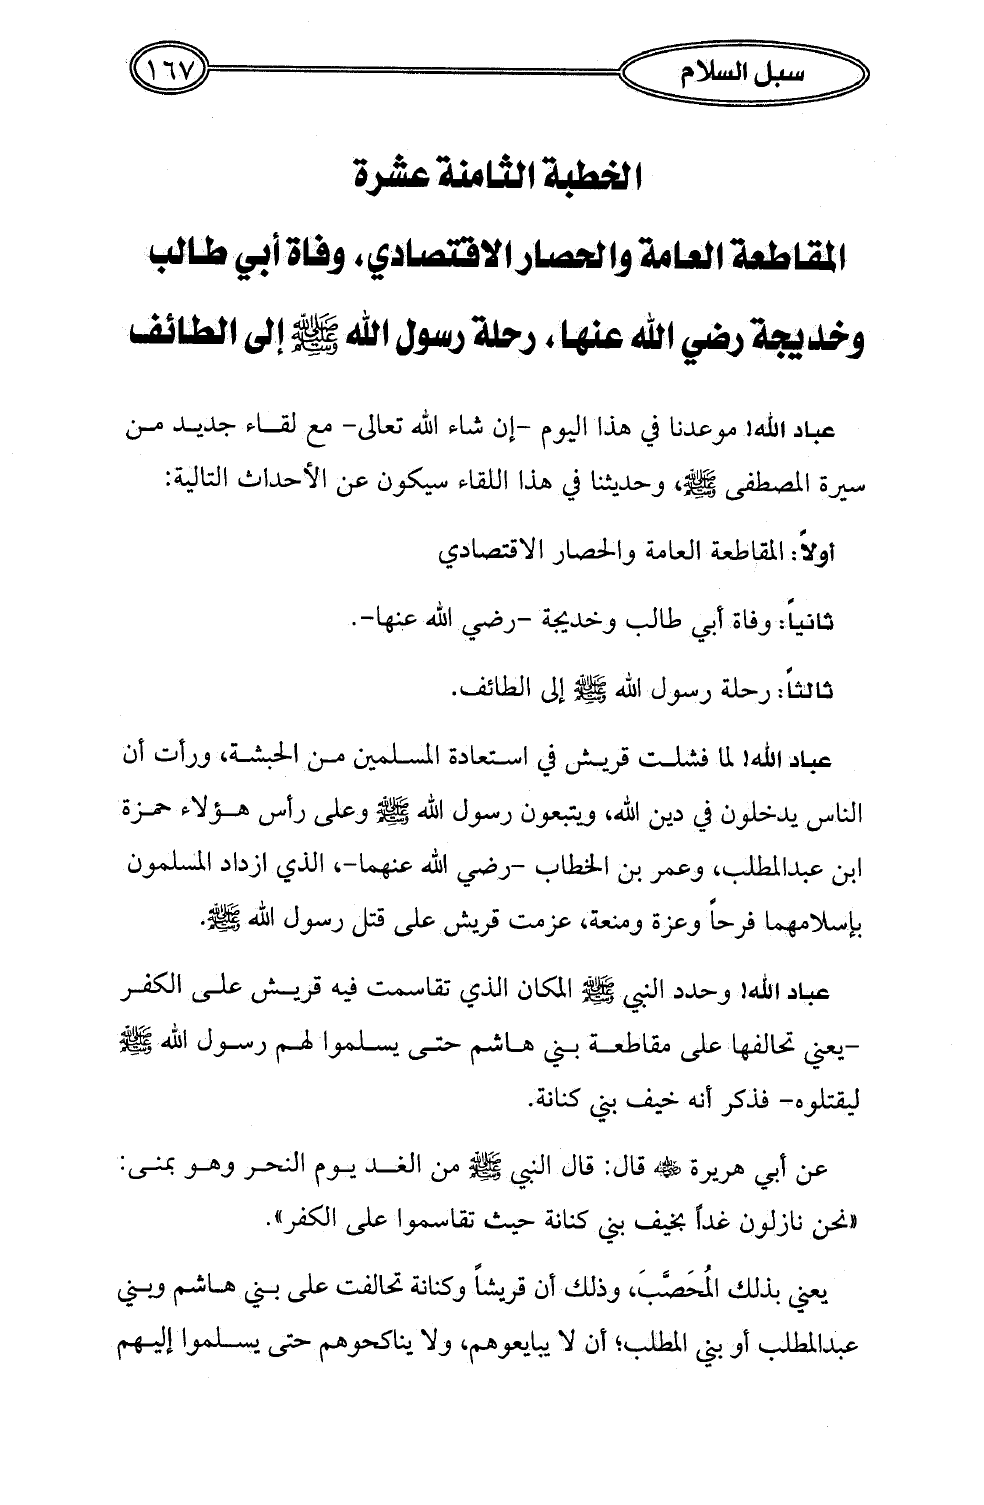 سبل السلام
١٦٧
الخطبة الثامنة عشرة
المقاطعة العامة والحصار الاقتصادي، وفاة أبي طالب
وخديجة رضي الله عنها، رحلة رسول الله ﷺ إلى الطائف
عباد الله! موعدنا في هذا اليوم -إن شاء الله تعالى- مع لقاء جديد من
سيرة المصطفى ﷺ، وحديثنا في هذا اللقاء سيكون عن الأحداث التالية:
أولاً: المقاطعة العامة والحصار الاقتصادي
ثانياً: وفاة أبي طالب وخديجة -رضي الله عنها-.
ثالثاً: رحلة رسول الله ﷺ إلى الطائف.
عباد الله! لما فشلت قريش في استعادة المسلمين من الحبشة، ورأت أن
الناس يدخلون في دين الله، ويتبعون رسول الله ﷺ وعلى رأس هؤلاء حمزة
ابن عبدالمطلب، وعمر بن الخطاب -رضي الله عنهما-، الذي ازداد المسلمون
بإسلامهما فرحاً وعزة ومنعة، عزمت قريش على قتل رسول الله ﷺ.
عباد الله! وحدد النبي ﷺ المكان الذي تقاسمت فيه قريش على الكفر
-يعني تحالفها على مقاطعة بني هاشم حتى يسلموا لهم رسول الله ﷺ
ليقتلوه- فذكر أنه خيف بني كنانة.
عن أبي هريرة ﷺ قال: قال النبي ﷺ من الغد يوم النحر وهو بمنى:
«نحن نازلون غداً بخيف بني كنانة حيث تقاسموا على الكفر».
يعني بذلك المُحَصَّبَ، وذلك أن قريشاً وكنانة تحالفت على بني هاشم وبني
عبدالمطلب أو بني المطلب؛ أن لا يبايعوهم، ولا يناكحوهم حتى يسلموا إليهم